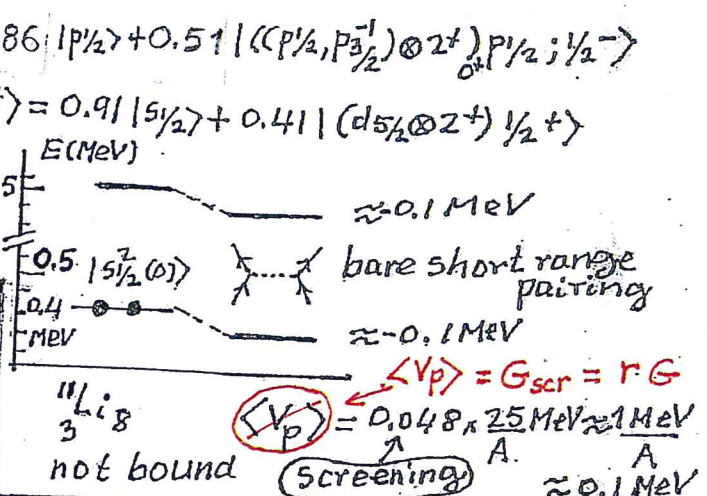 86 |p1/2⟩+0.51 |((p1/2, p3/2^-1)⊗2+)0+ p1/2 ; 1/2^-⟩
⟩ = 0.91 |s1/2⟩ + 0.41 | (d5/2⊗2+) 1/2 +⟩
E(MeV)
5
≈-0.1 MeV
0.5 |s²1/2 (0)⟩
bare short range
pairing
0.4
MeV
≈-0.1 MeV
⟨Vp⟩ = Gscr = r G
11Li8
3
⟨Vp⟩ = 0.048 × 25 MeV ≈ 1 MeV
A. A
not bound
Screening
≈ 0.1 MeV